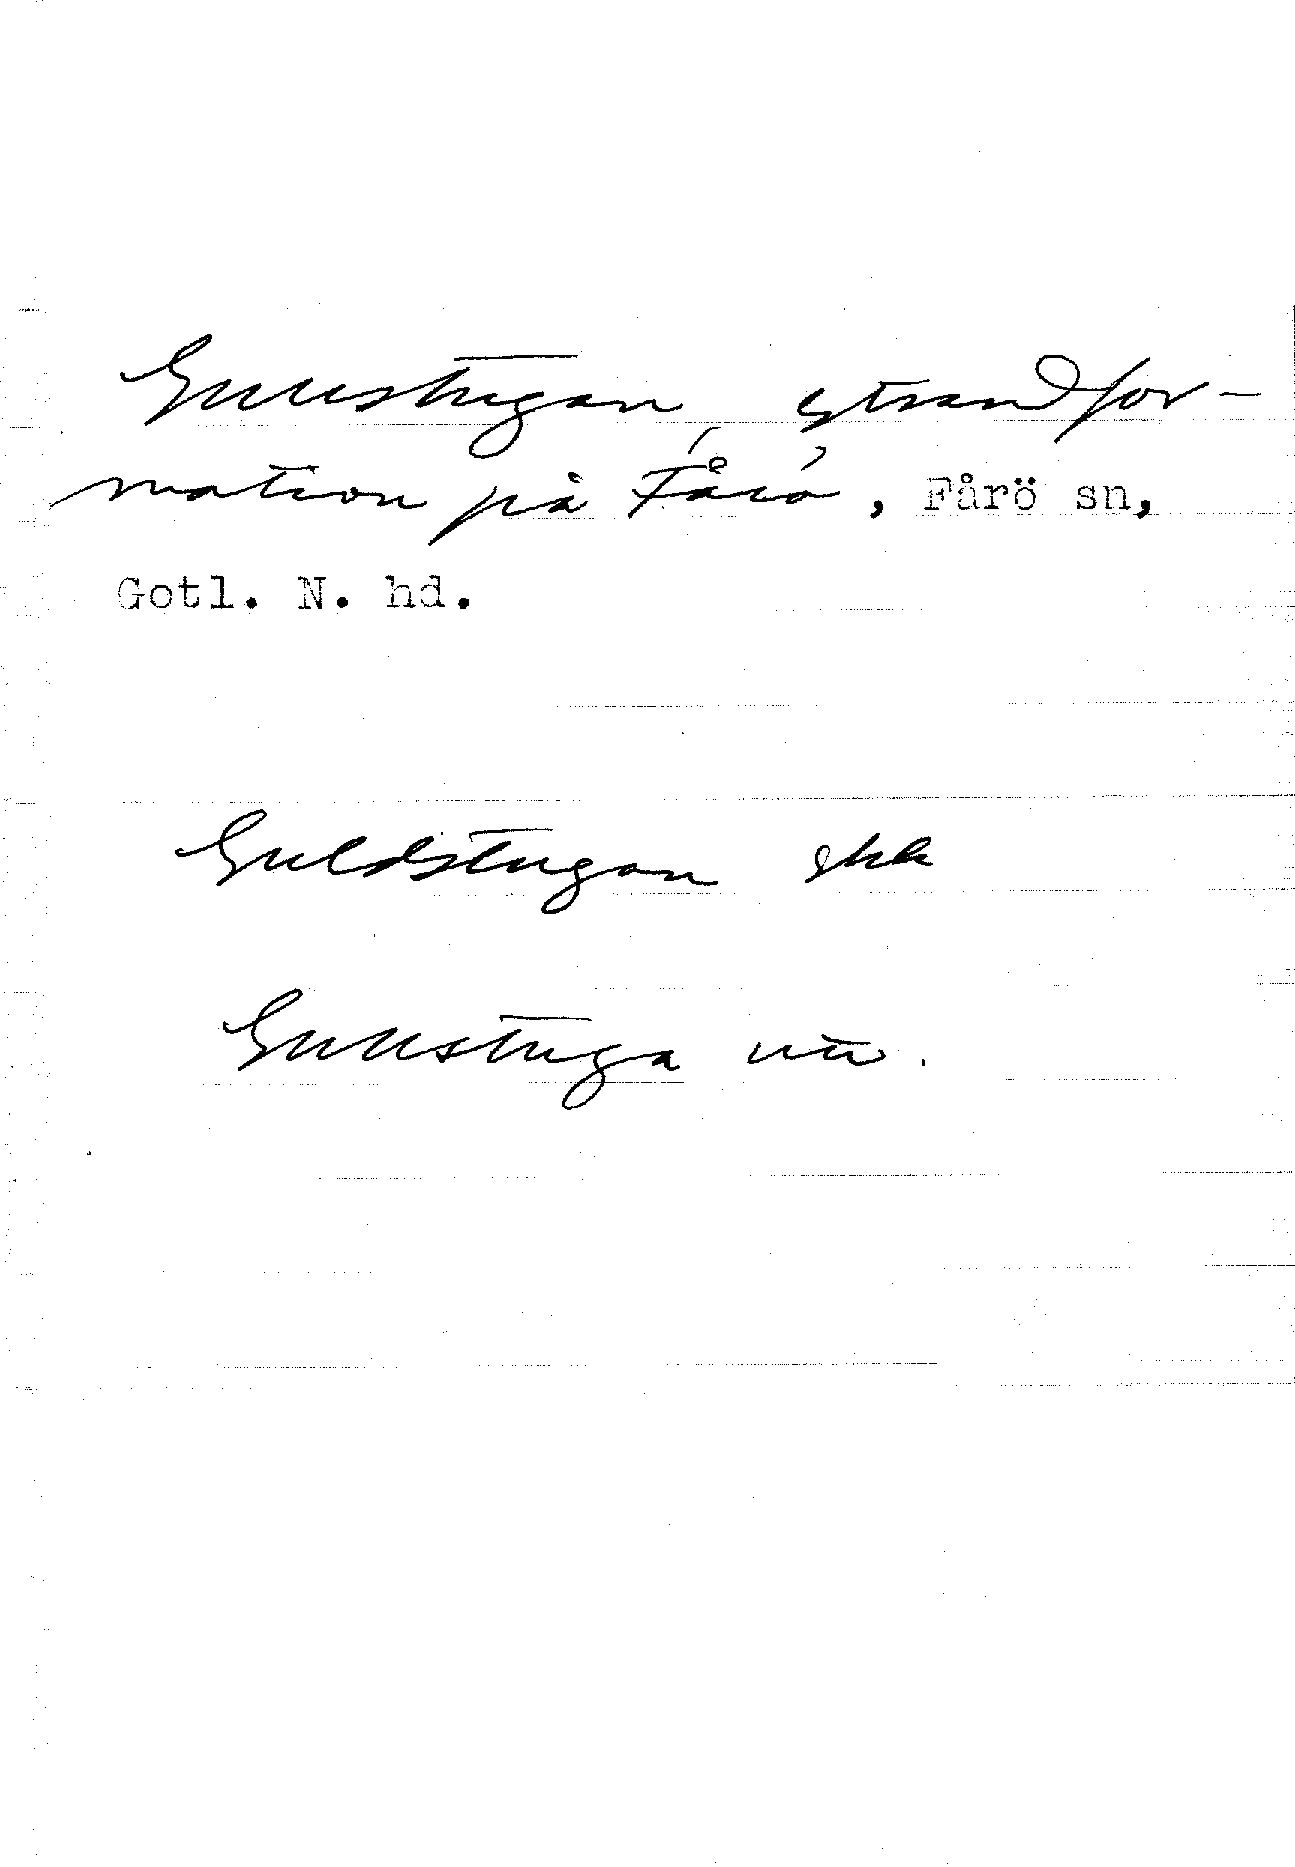 Gullstugan, strandfor-
mation på Fårö, Fårö sn,
Gotl. N. hd.
Guldstugan
Gullstuga